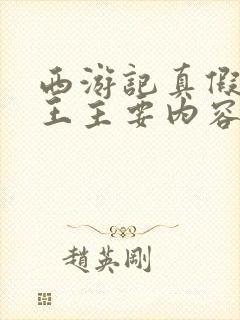 西游記真假
王主要内容
趙英剛